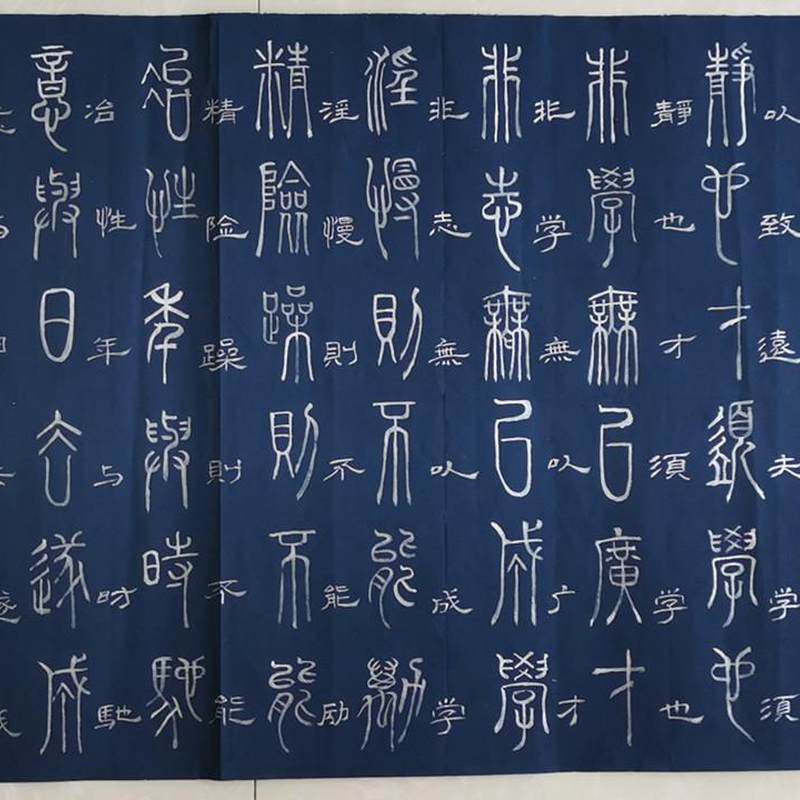 以致遠夫学須
靜也才須學也
靜也才須学也
非學無以廣才
非学無以广才
非志無以成學
非志無以成学
淫慢則不能勵
淫慢則不能励
精險躁則不能
精险躁則不能
冶性年與時馳
冶性年与时馳
意與日去遂成